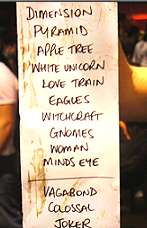 DIMENSION
PYRAMID
APPLE TREE
WHITE UNICORN
LOVE TRAIN
EAGLES
WITCHCRAFT
GNOMES
WOMAN
MINDS EYE
VAGABOND
COLOSSAL
JOKER